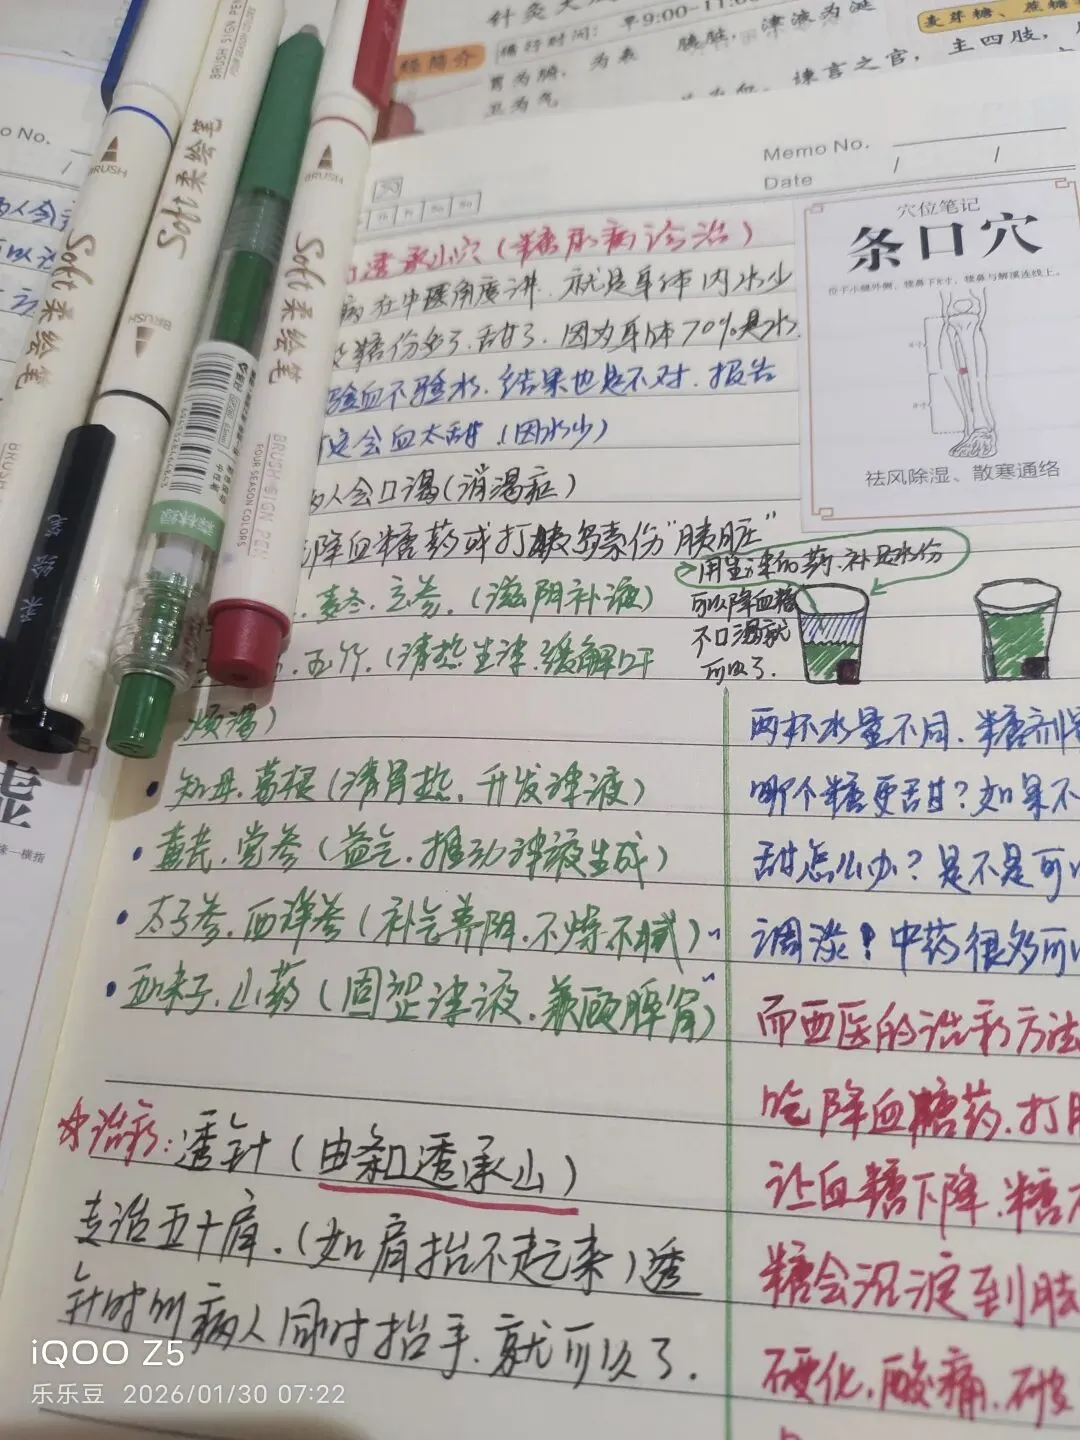 针灸大
循行时间：早9:00-11:0
经简介
胃为腑，为表
卫为气
膀胱，津液为涎
谏言之官，
麦芽糖、蔗糖
主四肢，
BRUSH SIGN PEN
Soft柔绘笔
BRUSH
Soft柔绘笔
BRUSH
Soft柔绘笔
BRUSH
BRUSH SIGN PEN
FOUR SEASON COLORS
柔绘笔
森林绿
中性笔
o No.
Memo No.
Date
透承山穴（糖尿病诊治）
病在中医角度讲，就是身体内水少
糖份多了，甜了，因为身体70%是水
验血不验水，结果也是不对，报告
这会血太甜（因水少）
人会口渴（消渴症）
降血糖药或打胰岛素伤“胰脏”
麦冬、玄参，（滋阴补液）
玉竹，（清热生津，缓解口干
烦渴）
• 知母、葛根（清胃热，升发津液）
• 黄芪、党参（益气，推动津液生成）
• 太子参、西洋参（补气养阴，不燥不腻）
• 五味子、山药（固涩津液，兼顾脾肾）
☆治病：透针（由条口透承山）
专治五十肩，（如肩抬不起来）透
针时叫病人同时抬手，就可以了．
穴位笔记
条口穴
位于小腿外侧，犊鼻下8寸，犊鼻与解溪连线上。
祛风除湿、散寒通络
用生津的药，补足水份
可以降血糖
不口渴就
可以了．
两杯水量不同，糖剂量
哪个糖更甜？如果不
甜怎么办？是不是可以
调淡！中药很多可以
而西医的治疗方法
吃降血糖药，打胰
让血糖下降，糖
糖会沉淀到肢
硬化，酸痛，
虚
横指
iQOO Z5
乐乐豆 2026/01/30 07:22